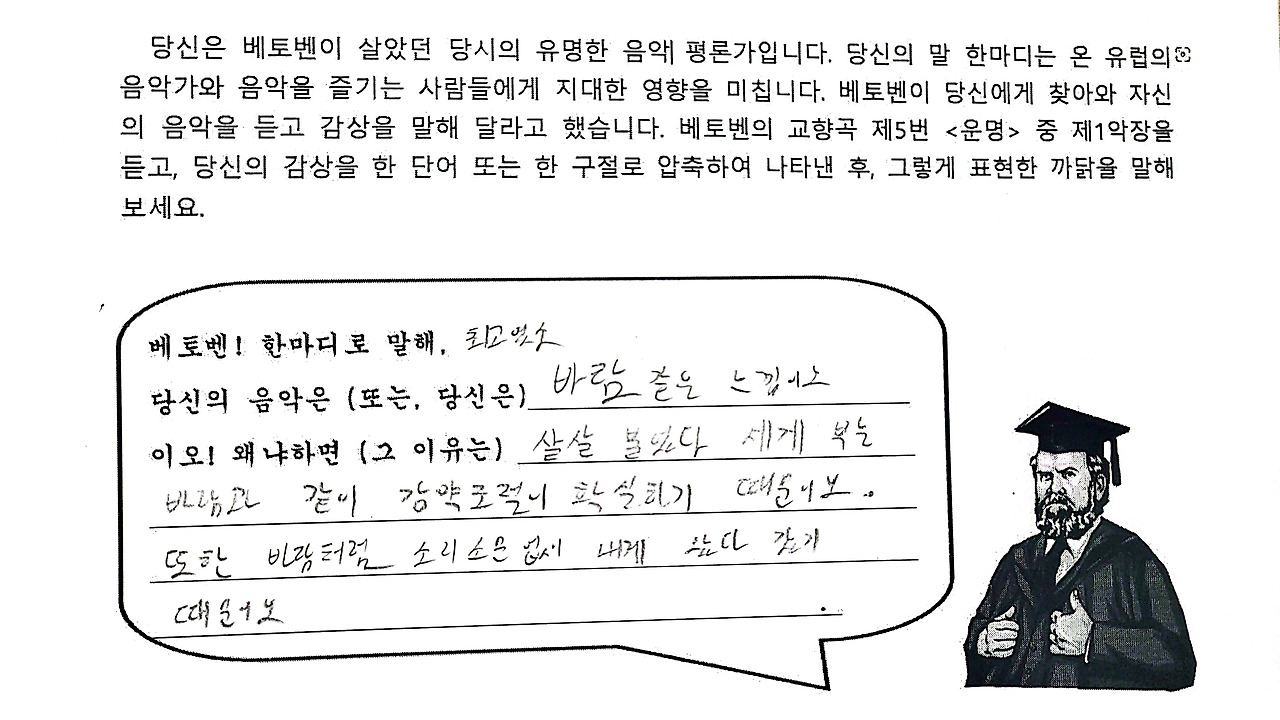 당신은 베토벤이 살았던 당시의 유명한 음악 평론가입니다. 당신의 말 한마디는 온 유럽의
음악가와 음악을 즐기는 사람들에게 지대한 영향을 미칩니다. 베토벤이 당신에게 찾아와 자신
의 음악을 듣고 감상을 말해 달라고 했습니다. 베토벤의 교향곡 제5번 <운명> 중 제1악장을
듣고, 당신의 감상을 한 단어 또는 한 구절로 압축하여 나타낸 후, 그렇게 표현한 까닭을 말해
보세요.
베토벤! 한마디로 말해, 최고였소
당신의 음악은 (또는, 당신은) 바람 같은 느낌이오
이오! 왜냐하면 (그 이유는) 살살 불었다 세게 부는
바람과 같이 강약조절이 확실하기 때문이오.
또한 바람처럼 소리소문없이 내게 왔다 갔기
때문이오.